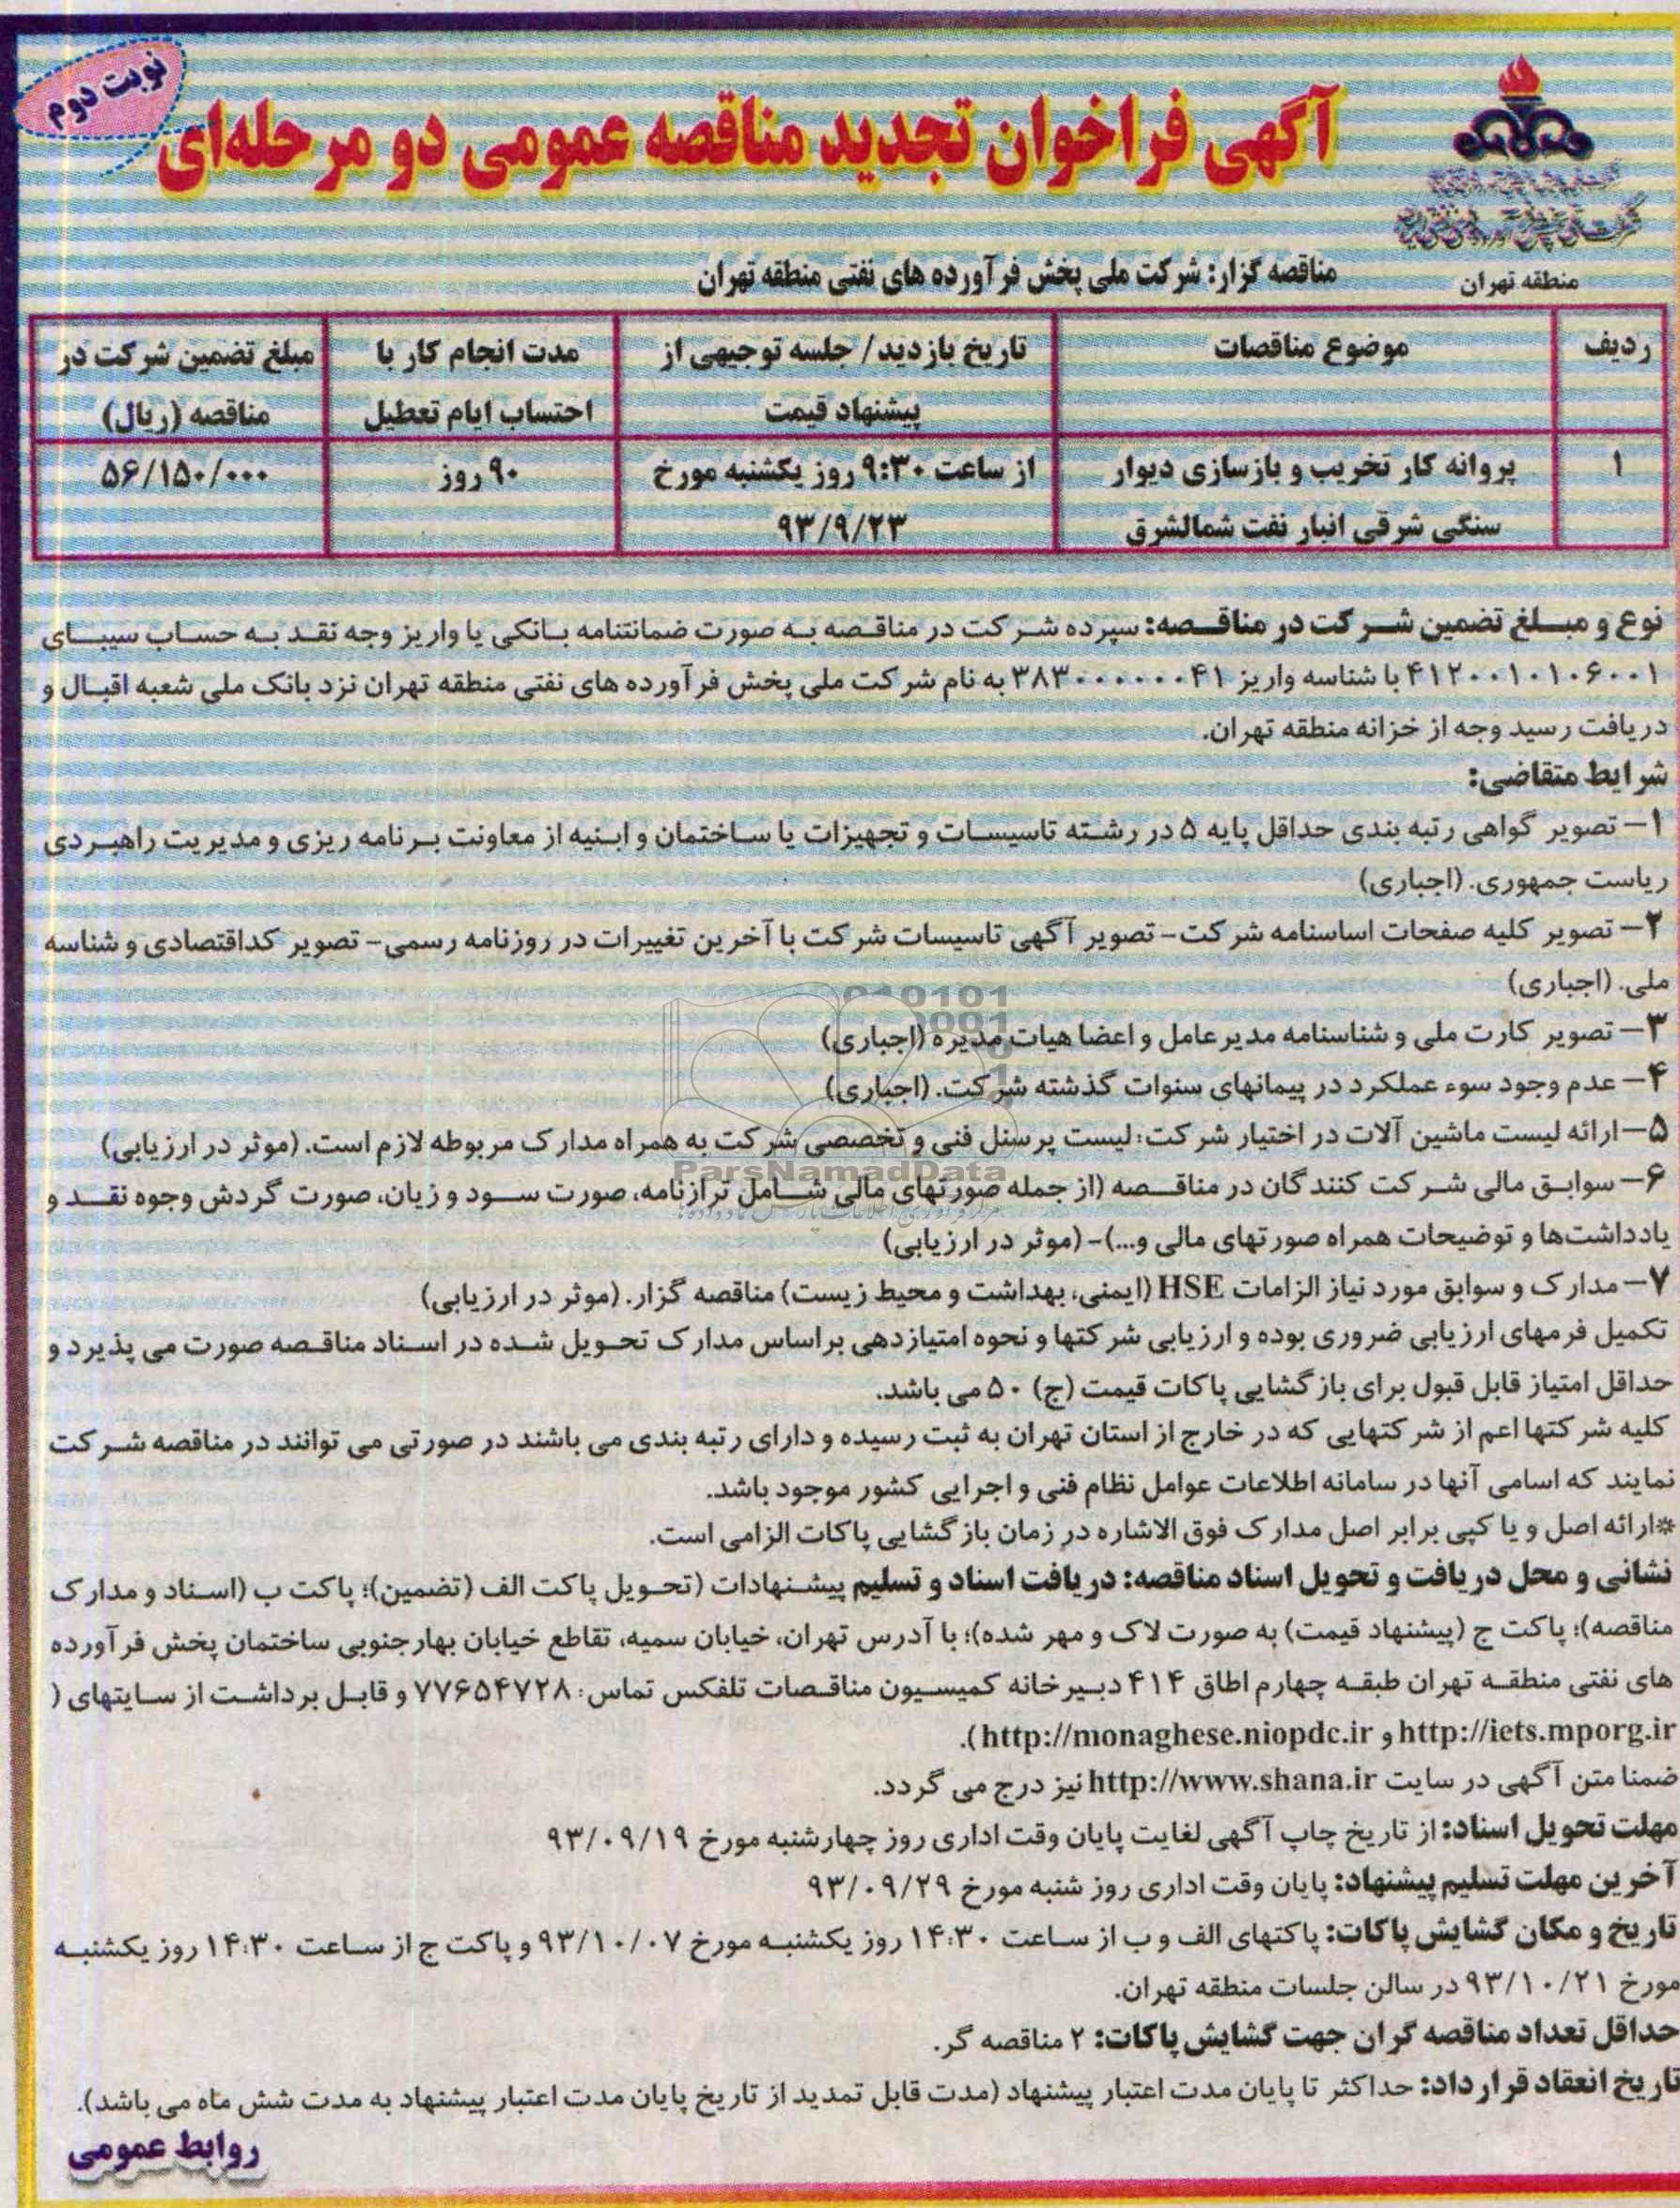 نوبت دوم
آگهی فراخوان تجدید مناقصه عمومی دو مرحله‌ای
منطقه تهران
مناقصه گزار: شرکت ملی پخش فرآورده های نفتی منطقه تهران
ردیف | موضوع مناقصات | تاریخ بازدید/ جلسه توجیهی از پیشنهاد قیمت | مدت انجام کار با احتساب ایام تعطیل | مبلغ تضمین شرکت در مناقصه (ریال)
۱ | پروانه کار تخریب و بازسازی دیوار سنگی شرقی انبار نفت شمالشرق | از ساعت ۹:۳۰ روز یکشنبه مورخ ۹۳/۹/۲۳ | ۹۰ روز | ۵۶/۱۵۰/۰۰۰
نوع و مبلغ تضمین شرکت در مناقصه: سپرده شرکت در مناقصه به صورت ضمانتنامه بانکی یا واریز وجه نقد به حساب سیبای
۴۱۲۰۰۱۰۱۰۶۰۰۱ با شناسه واریز ۳۸۳۰۰۰۰۰۰۰۴۱ به نام شرکت ملی پخش فرآورده های نفتی منطقه تهران نزد بانک ملی شعبه اقبال و
دریافت رسید وجه از خزانه منطقه تهران.
شرایط متقاضی:
۱- تصویر گواهی رتبه بندی حداقل پایه ۵ در رشته تاسیسات و تجهیزات یا ساختمان و ابنیه از معاونت برنامه ریزی و مدیریت راهبردی
ریاست جمهوری. (اجباری)
۲- تصویر کلیه صفحات اساسنامه شرکت- تصویر آگهی تاسیسات شرکت با آخرین تغییرات در روزنامه رسمی- تصویر کداقتصادی و شناسه
ملی. (اجباری)
۳- تصویر کارت ملی و شناسنامه مدیرعامل و اعضا هیات مدیره (اجباری)
۴- عدم وجود سوء عملکرد در پیمانهای سنوات گذشته شرکت. (اجباری)
۵- ارائه لیست ماشین آلات در اختیار شرکت: لیست پرسنل فنی و تخصصی شرکت به همراه مدارک مربوطه لازم است. (موثر در ارزیابی)
ParsNamadData
۶- سوابق مالی شرکت کنندگان در مناقصه (از جمله صورتهای مالی شامل ترازنامه، صورت سود و زیان، صورت گردش وجوه نقد و
یادداشت‌ها و توضیحات همراه صورتهای مالی و...)- (موثر در ارزیابی)
۷- مدارک و سوابق مورد نیاز الزامات HSE (ایمنی، بهداشت و محیط زیست) مناقصه گزار. (موثر در ارزیابی)
تکمیل فرمهای ارزیابی ضروری بوده و ارزیابی شرکتها و نحوه امتیازدهی براساس مدارک تحویل شده در اسناد مناقصه صورت می پذیرد و
حداقل امتیاز قابل قبول برای بازگشایی پاکات قیمت (ج) ۵۰ می باشد.
کلیه شرکتها اعم از شرکتهایی که در خارج از استان تهران به ثبت رسیده و دارای رتبه بندی می باشند در صورتی می توانند در مناقصه شرکت
نمایند که اسامی آنها در سامانه اطلاعات عوامل نظام فنی و اجرایی کشور موجود باشد.
*ارائه اصل و یا کپی برابر اصل مدارک فوق الاشاره در زمان بازگشایی پاکات الزامی است.
نشانی و محل دریافت و تحویل اسناد مناقصه: دریافت اسناد و تسلیم پیشنهادات (تحویل پاکت الف (تضمین)؛ پاکت ب (اسناد و مدارک
مناقصه)؛ پاکت ج (پیشنهاد قیمت) به صورت لاک و مهر شده)؛ با آدرس تهران، خیابان سمیه، تقاطع خیابان بهارجنوبی ساختمان پخش فرآورده
های نفتی منطقه تهران طبقه چهارم اطاق ۴۱۴ دبیرخانه کمیسیون مناقصات تلفکس تماس: ۷۷۶۵۴۷۲۸ و قابل برداشت از سایتهای (
http://iets.mporg.ir و http://monaghese.niopdc.ir).
ضمنا متن آگهی در سایت http://www.shana.ir نیز درج می گردد.
مهلت تحویل اسناد: از تاریخ چاپ آگهی لغایت پایان وقت اداری روز چهارشنبه مورخ ۹۳/۰۹/۱۹
آخرین مهلت تسلیم پیشنهاد: پایان وقت اداری روز شنبه مورخ ۹۳/۰۹/۲۹
تاریخ و مکان گشایش پاکات: پاکتهای الف و ب از ساعت ۱۴:۳۰ روز یکشنبه مورخ ۹۳/۱۰/۰۷ و پاکت ج از ساعت ۱۴:۳۰ روز یکشنبه
مورخ ۹۳/۱۰/۲۱ در سالن جلسات منطقه تهران.
حداقل تعداد مناقصه گران جهت گشایش پاکات: ۲ مناقصه گر.
تاریخ انعقاد قرارداد: حداکثر تا پایان مدت اعتبار پیشنهاد (مدت قابل تمدید از تاریخ پایان مدت اعتبار پیشنهاد به مدت شش ماه می باشد).
روابط عمومی